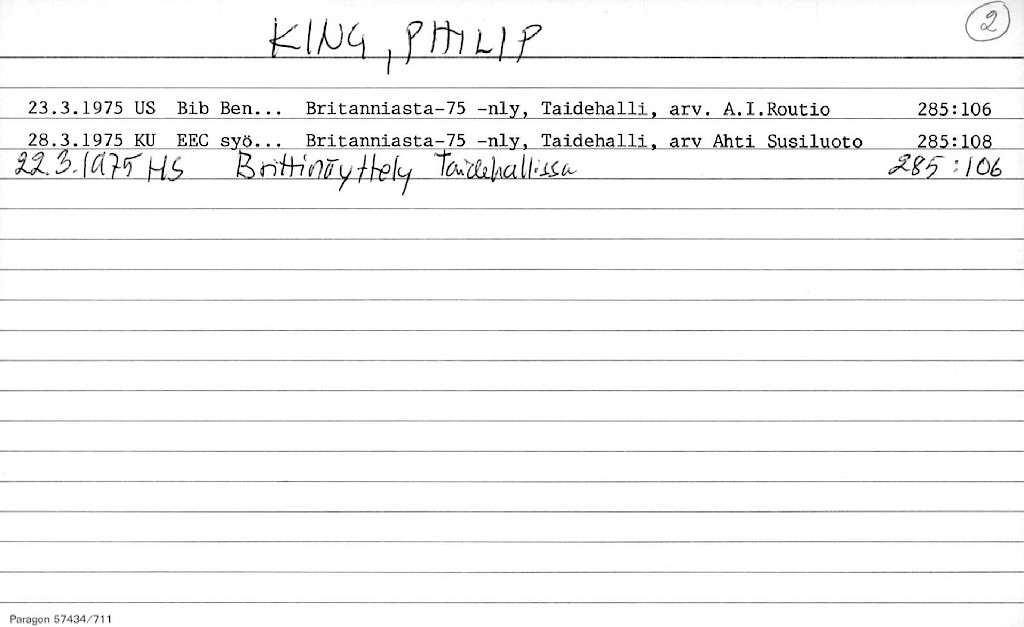 KING, PHILIP
2
23.3.1975 US Bib Ben... Britanniasta-75 -nly, Taidehalli, arv. A.I.Routio 285:106
28.3.1975 KU EEC syö... Britanniasta-75 -nly, Taidehalli, arv Ahti Susiluoto 285:108
22.3.1975 HS Brittinäyttely Taidehallissa 285:106
Paragon 57434/711